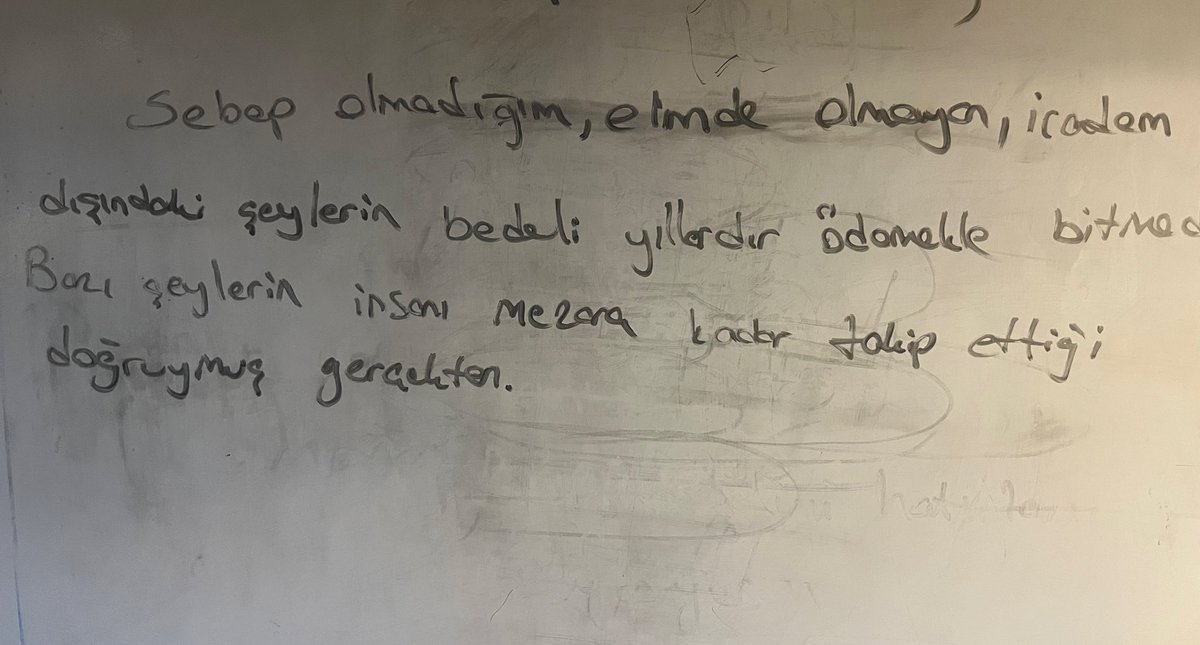 Sebep olmadığım, elimde olmayan, iradem
dışındaki şeylerin bedeli yıllardır ödemekle bitmed
Bazı şeylerin insanı mezara kadar takip ettiği
doğruymuş gerçekten.